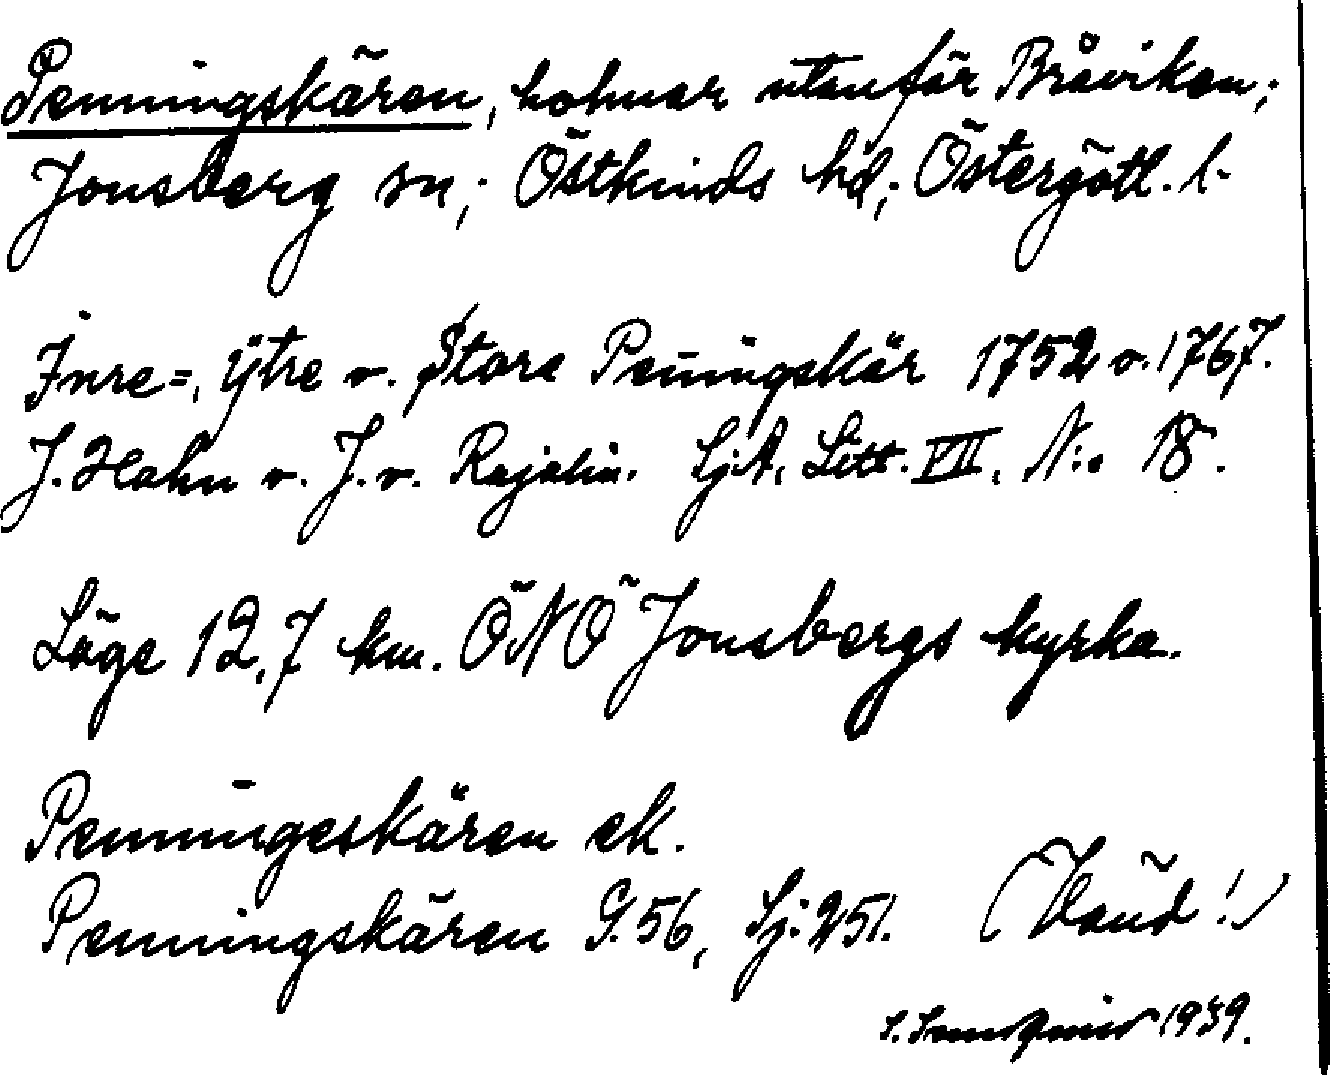 Penningskären, holmar utanför Bråviken;
Jonsberg sn; Östkinds hd; Östergötl. l.
Inre=, Yttre o. Stora Peningskär 1752 o. 1767.
J. Hahn o. J. v. Rajalin. Sj.A. Litt. VII. N:o 18.
Läge 12,7 km. ÖNÖ Jonsbergs kyrka.
Penningeskären ek.
Penningskären G.56, Sj:251. (Vänd!)
1939.